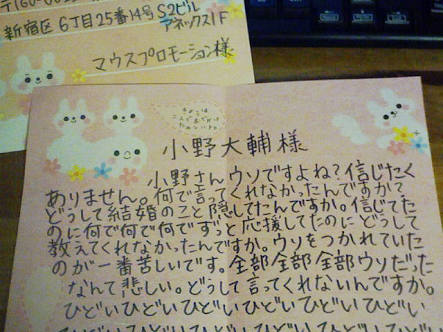 新宿区6丁目25番14号 S2ビル
アネックス1F
マウスプロモーション様
小野大輔様
小野さんウソですよね?信じたく
ありません。何で言ってくれなかったんですか?
どうして結婚のこと隠してたんですか。信じてた
のに何で何で何でずっと応援してたのにどうして
教えてくれなかったんですか。ウソをつかれていた
のが一番苦しいです。全部全部全部ウソだった
なんて悲しい。どうして言ってくれないんですか。
ひどいひどいひどいひどいひどいひどいひどい